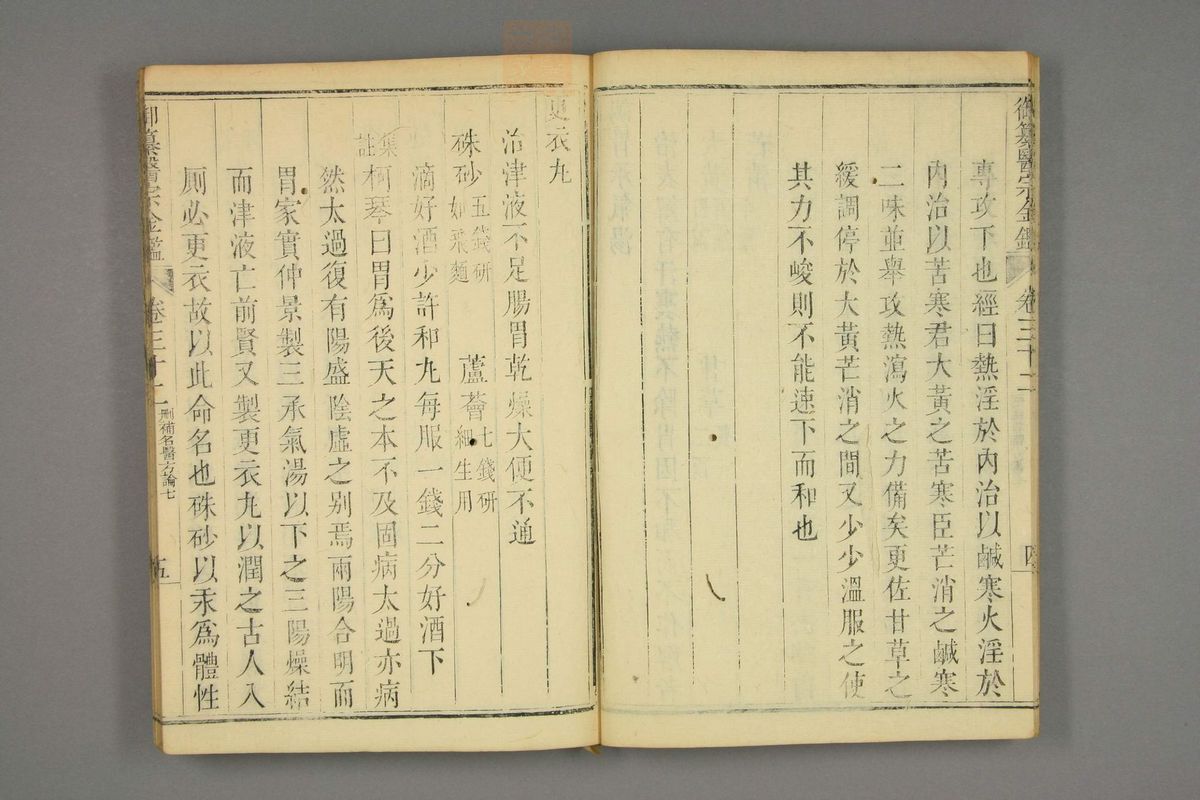 御纂醫宗金鑑 卷三十二
專攻下也經曰熱淫於內治以鹹寒火淫於
內治以苦寒君大黃之苦寒臣芒消之鹹寒
二味並舉攻熱瀉火之力備矣更佐甘草之
緩調停於大黃芒消之間又少少溫服之使
其力不峻則不能速下而和也
更衣丸
治津液不足腸胃乾燥大便不通
硃砂五錢研如飛麵 蘆薈七錢研細生用
滴好酒少許和丸每服一錢二分好酒下
集註柯琴曰胃為後天之本不及固病太過亦病
然太過復有陽盛陰虛之別焉兩陽合明而
胃家實仲景製三承氣湯以下之三陽燥結
而津液亡前賢又製更衣丸以潤之古人入
厠必更衣故以此命名也硃砂以汞為體性
御纂醫宗金鑑 卷三十二 刪補名醫方論七 五